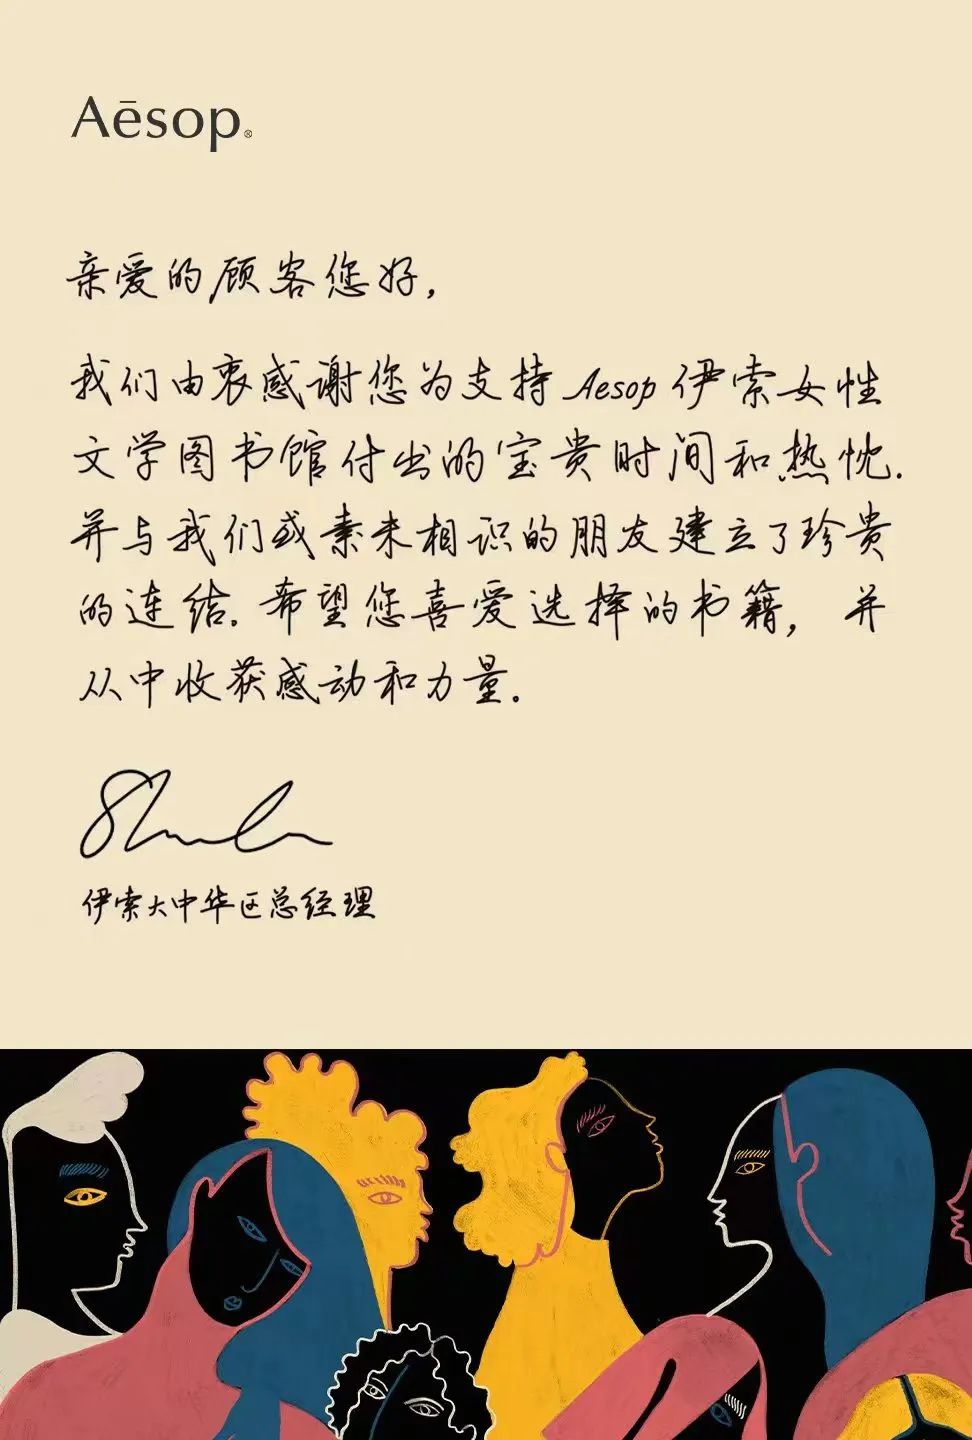 Aēsop®
亲爱的顾客您好,
我们由衷感谢您为支持Aesop伊索女性
文学图书馆付出的宝贵时间和热忱.
并与我们或素未相识的朋友建立了珍贵
的连结.希望您喜爱选择的书籍,并
从中收获感动和力量.
伊索大中华区总经理